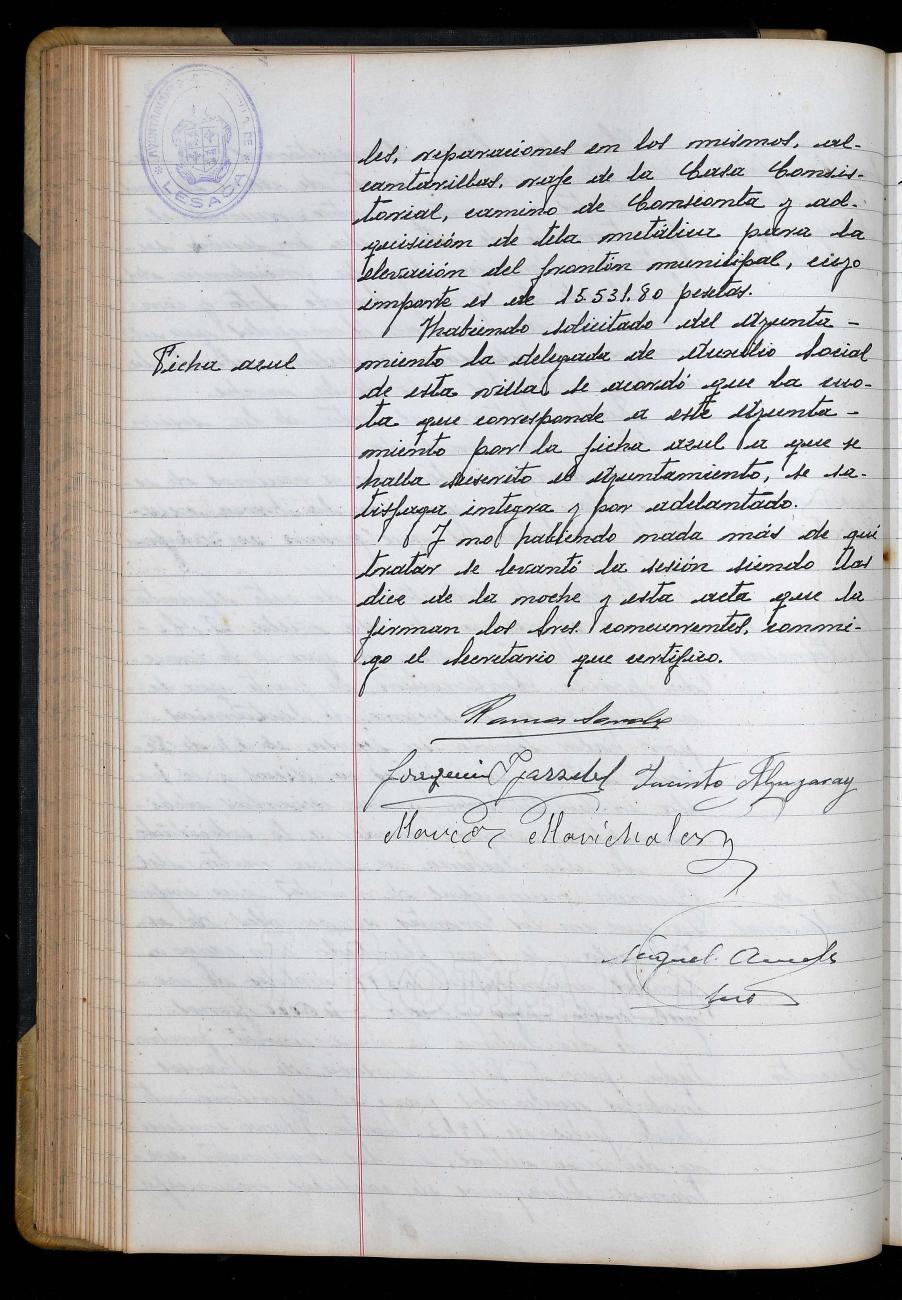 AYUNTAMIENTO DE LA VILLA DE
LESACA
les, reparaciones en los mismos, al-
cantarillas, rafe de la Casa Consis-
torial, camino de y ad-
quisición de tela metálica para la
elevación del frontón municipal, cuyo
importe es de 15.531.80 pesetas.
Habiendo solicitado del Ayunta-
Ficha azul
miento la delegada de Auxilio Social
de esta villa, se acordó que la cuo-
ta que corresponde a este Ayunta-
miento por la ficha azul a que se
halla suscrito el Ayuntamiento, se sa-
tisfaga integra y por adelantado.
Y no habiendo nada más de que
tratar se levantó la sesión siendo las
diez de la noche y esta acta que la
firman los Sres. concurrentes, conmi-
go el Secretario que certifico.
Ramon
Joaquin Jacinto
Marcos Marichalar
Miguel
Srio